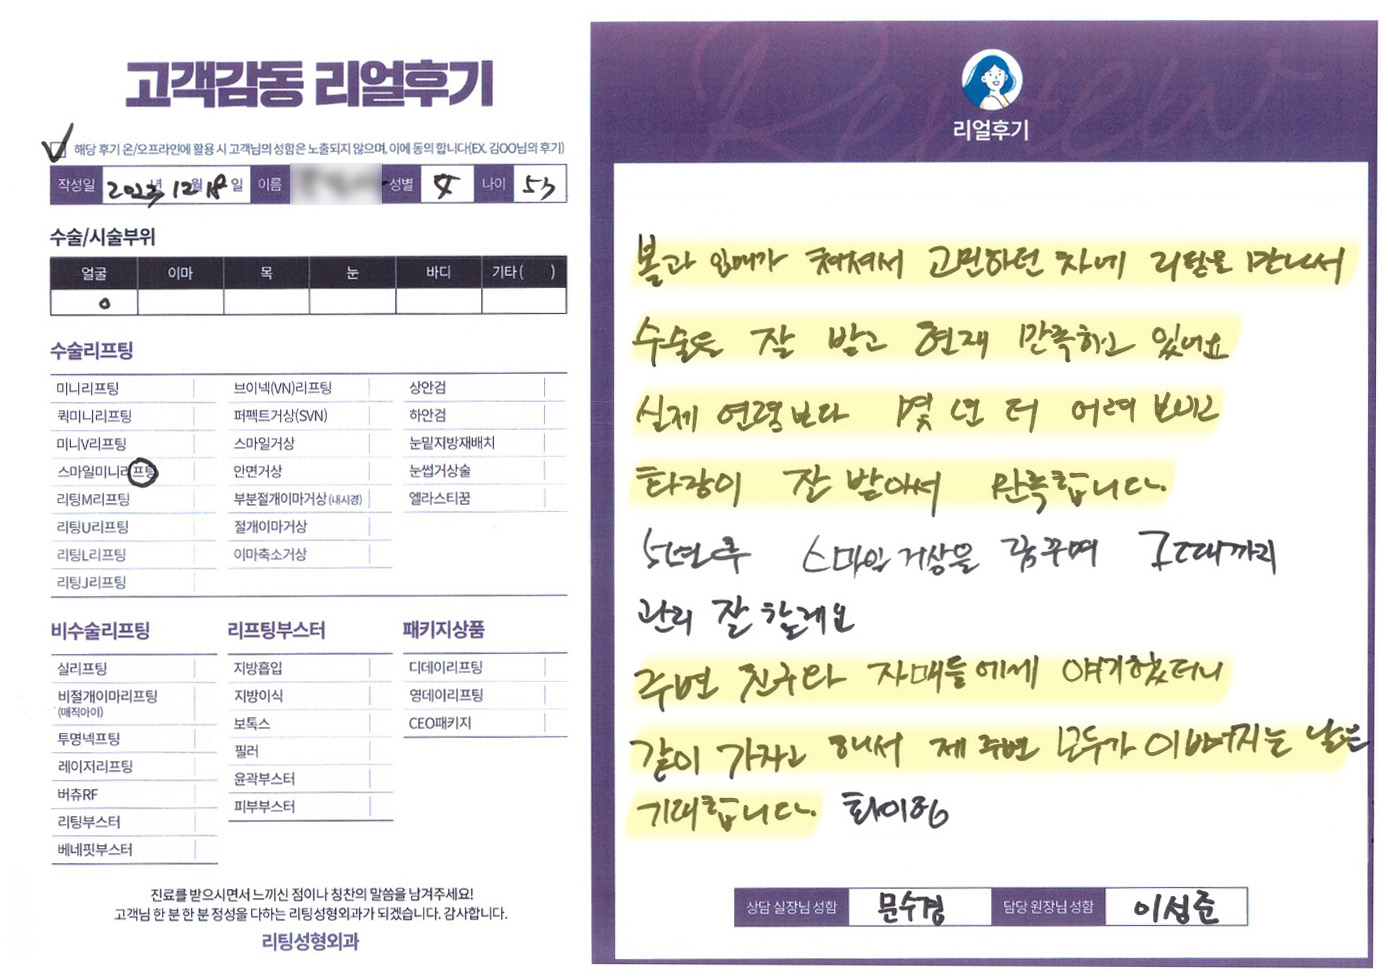 고객감동 리얼후기
해당 후기 온/오프라인에 활용 시 고객님의 성함은 노출되지 않으며, 이에 동의 합니다(EX. 김OO님의 후기)
작성일 2023년 12월 18일 이름 성별 女 나이 53
수술/시술부위
얼굴 이마 목 눈 바디 기타 ( )
o
수술리프팅
미니리프팅 브이넥(VN)리프팅 상안검
퀵미니리프팅 퍼펙트거상(SVN) 하안검
미니V리프팅 스마일거상 눈밑지방재배치
스마일미니리프팅 안면거상 눈썹거상술
리팅M리프팅 부분절개이마거상 (내시경) 엘라스티꿈
리팅U리프팅 절개이마거상
리팅L리프팅 이마축소거상
리팅J리프팅
비수술리프팅 리프팅부스터 패키지상품
실리프팅 지방흡입 디데이리프팅
비절개이마리프팅 지방이식 영데이리프팅
(매직아이)
보톡스 CEO패키지
투명넥프팅 필러
레이저리프팅 윤곽부스터
버츄RF 피부부스터
리팅부스터
베네핏부스터
진료를 받으시면서 느끼신 점이나 칭찬의 말씀을 남겨주세요!
고객님 한 분 한 분 정성을 다하는 리팅성형외과가 되겠습니다. 감사합니다.
리팅성형외과
Review
리얼후기
볼과 입매가 쳐져서 고민하던 차에 리팅을 만나서
수술은 잘 받고 현재 만족하고 있어요
실제 연령보다 몇 년 더 어려 보이고
화장이 잘 받아서 만족합니다.
5년후 스마일거상을 꿈꾸며 그때까지
관리 잘 할래요
주변 친구와 자매들에게 얘기했더니
같이 가자고 해서 제 주변 모두가 이뻐지는 날을
기대합니다. 화이팅
상담 실장님 성함 문수경 담당 원장님 성함 이성준